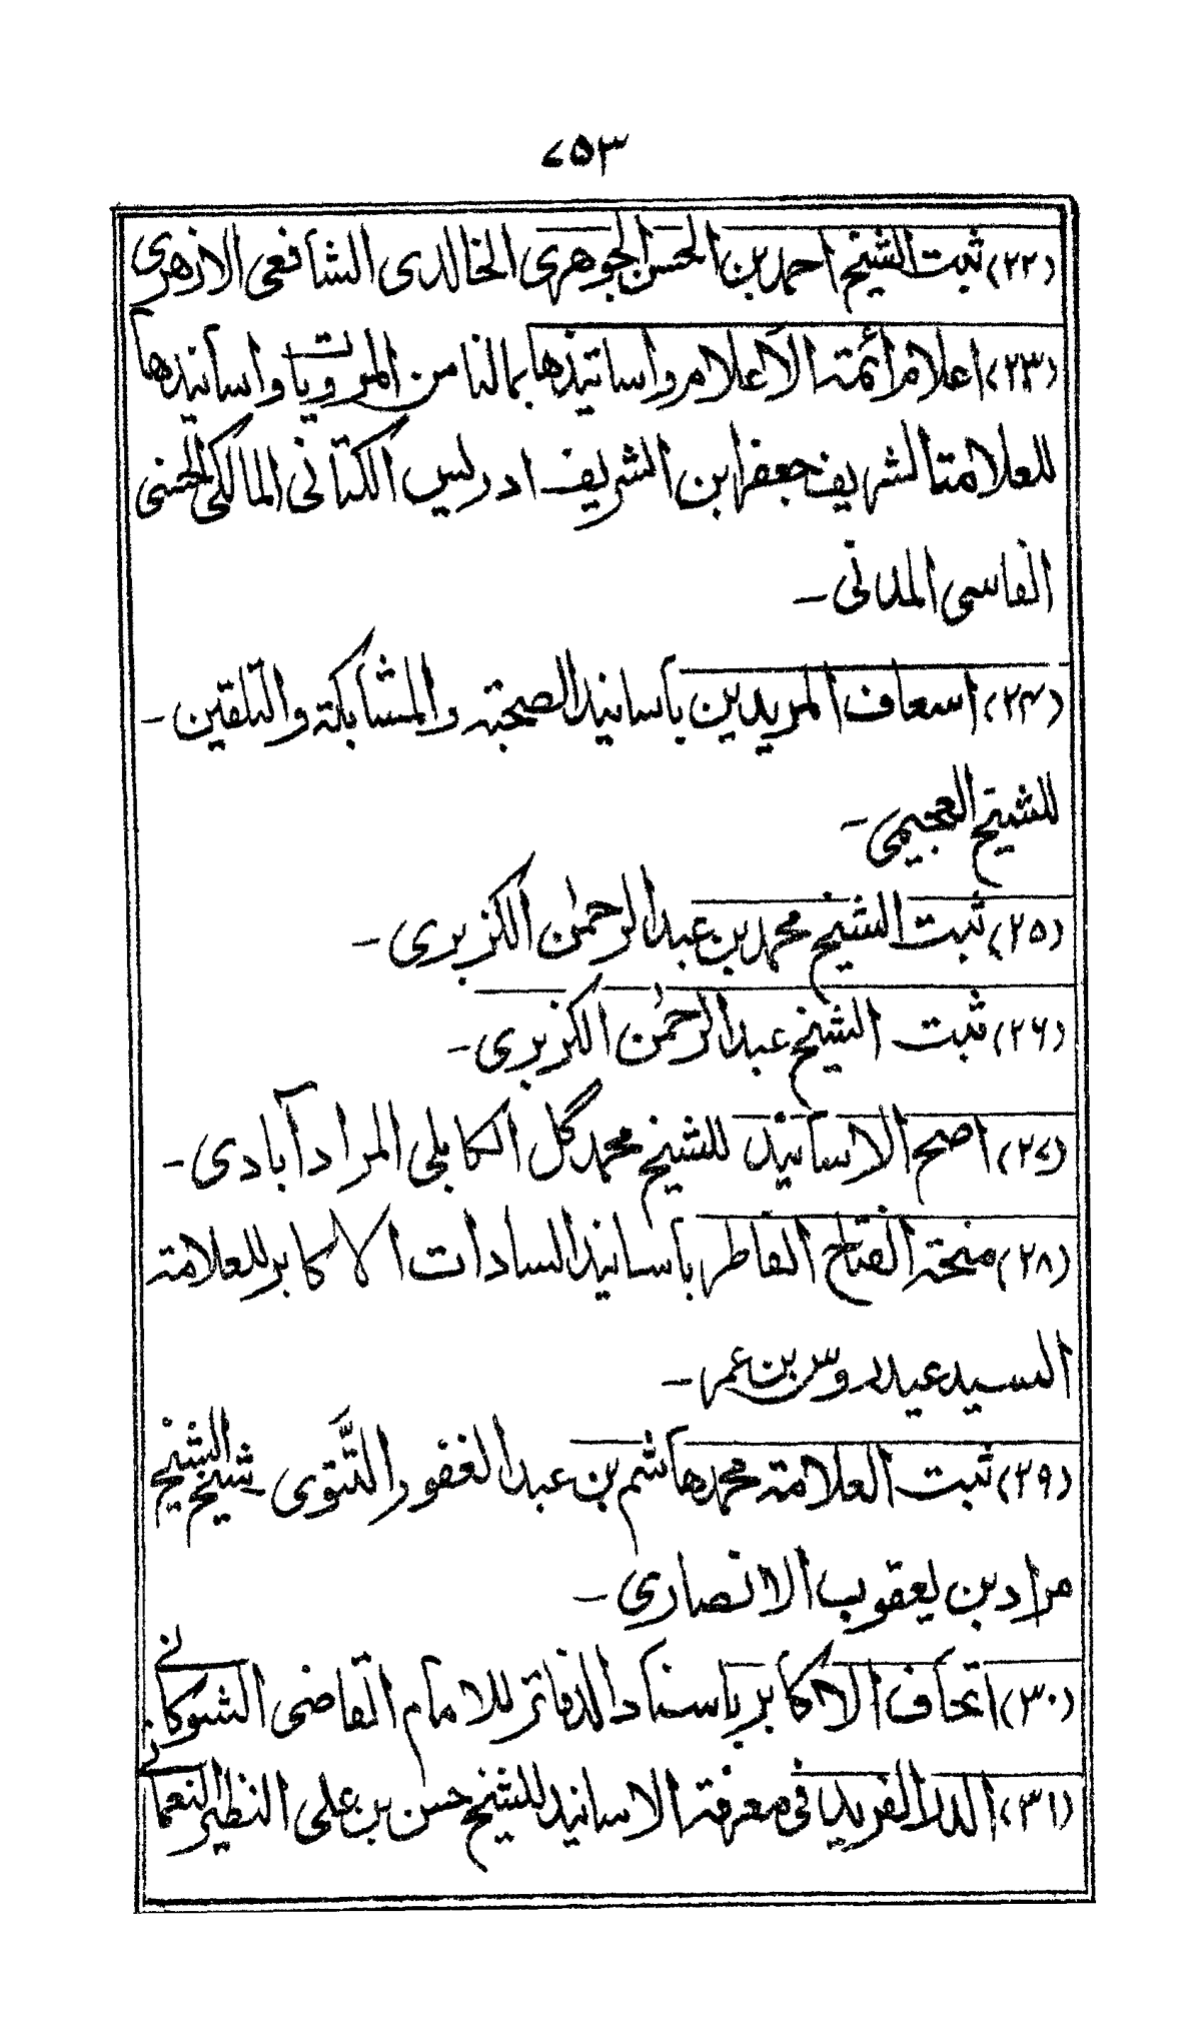 ۷۵۳
(۲۲) ثبت الشیخ احمد بن الحسن الجوهری الخالدی الشافعی الازهری
(۲۳) اعلام ائمة الاعلام واساتیذها بمالنا من المرویات واسانیدها
للعلامة الشریف جعفر ابن الشریف ادریس الکتانی المالکی الحسنی
الفاسی المدنی ۔
(۲۴) اسعاف المریدین باسانید الصحبة والمشابکة والتلقین ۔
للشیخ العجیمی ۔
(۲۵) ثبت الشیخ محمد بن عبد الرحمٰن الکزبری ۔
(۲۶) ثبت الشیخ عبد الرحمٰن الکزبری ۔
(۲۷) اصح الاسانید للشیخ محمد گل الکابلی المراد آبادی ۔
(۲۸) منحة الفتاح الفاطر باسانید السادات الاکابر للعلامة
السید عیدروس بن عمر ۔
(۲۹) ثبت العلامة محمد هاشم بن عبد الغفور التتوی ۔ شیخ الشیخ
مراد بن یعقوب الانصاری ۔
(۳۰) اتحاف الاکابر باسناد الدفاتر للامام القاضی الشوکانی
(۳۱) الدر الفرید فی معرفة الاسانید للشیخ حسن بن علی النظیر النعمانی